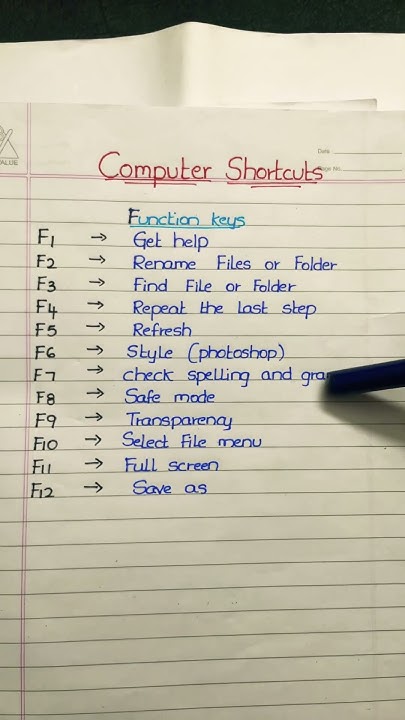 VALUE
Date
Page No.
Computer Shortcuts
Function keys
F1 → Get help
F2 → Rename Files or Folder
F3 → Find File or Folder
F4 → Repeat the last step
F5 → Refresh
F6 → Style (photoshop)
F7 → check spelling and gra
F8 → Safe mode
F9 → Transparency
F10 → Select File menu
F11 → Full screen
F12 → Save as